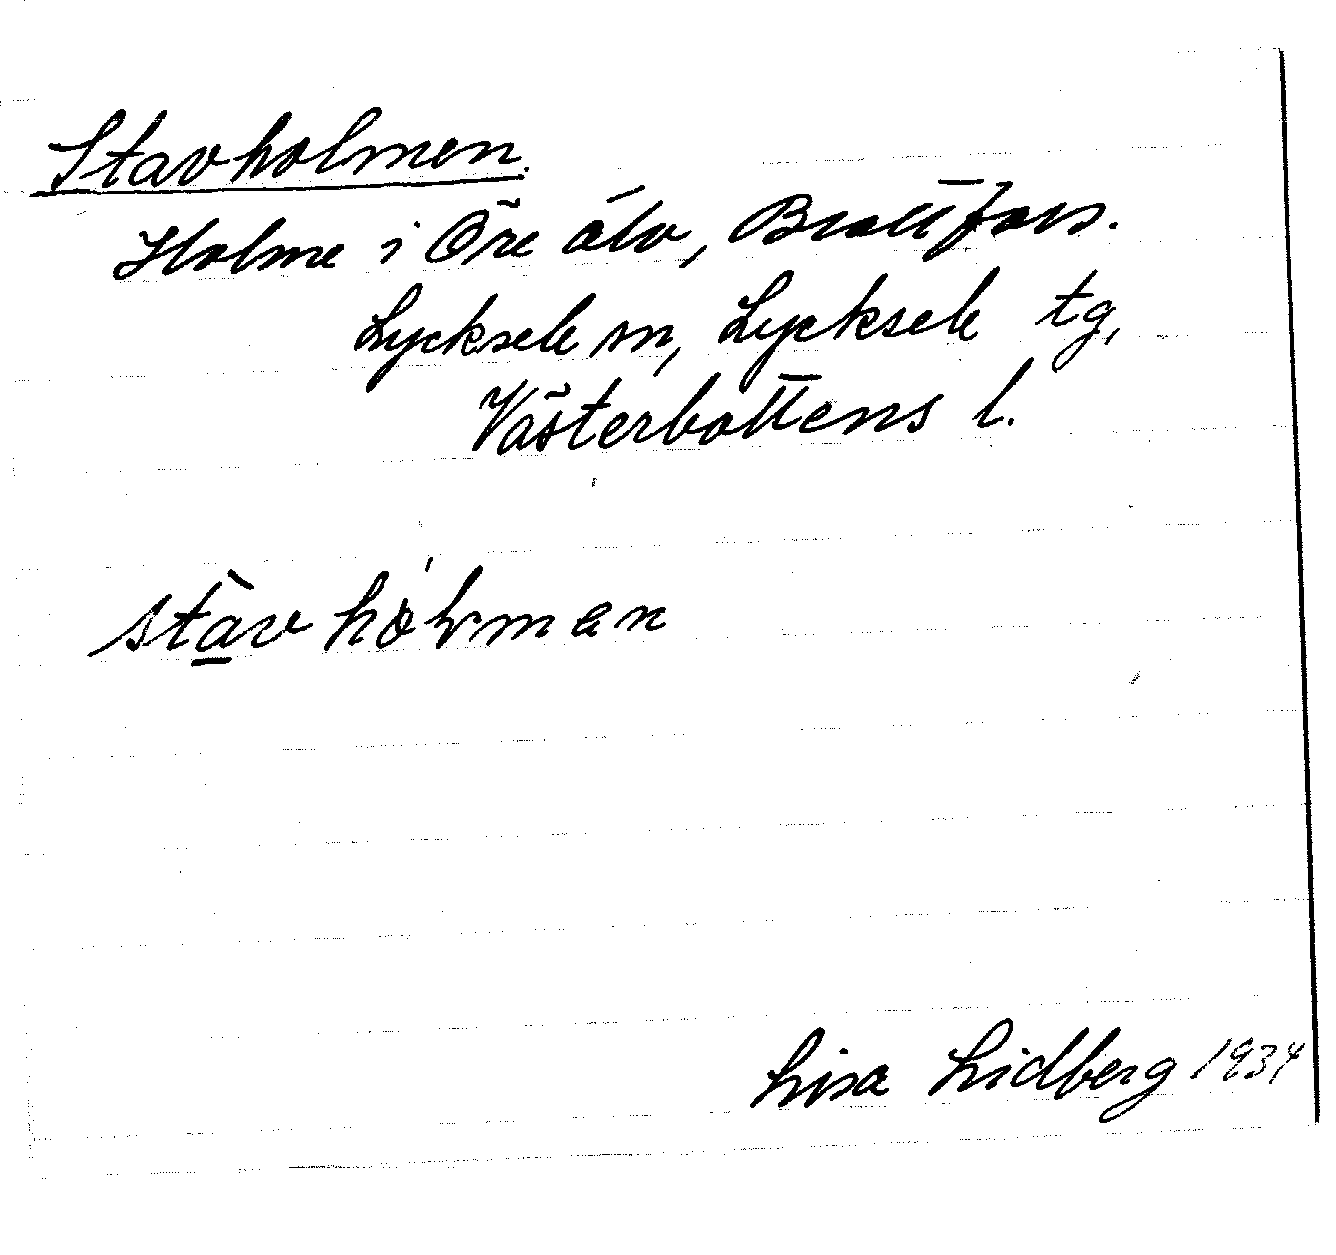 Stavholmen.
Holme i Öre älv, Brattfors.
Lycksele sn, Lycksele tg,
Västerbottens l.
stàv hólman
Lisa Lidberg 1934